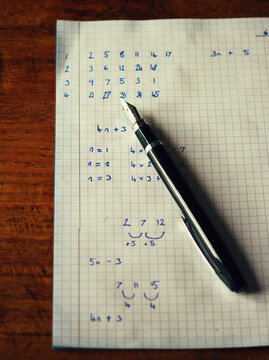 1 2 5 8 11 14 17 3n + 5
2 3 6 12 24 48
3 9 7 5 3 1
4 45
4n + 3
n = 1 4 × = 7
n = 2 4 ×
n = 3 4 × 3 +
2 7 12
+5 +5
5n - 3
7 11 15
4 4
4n + 3